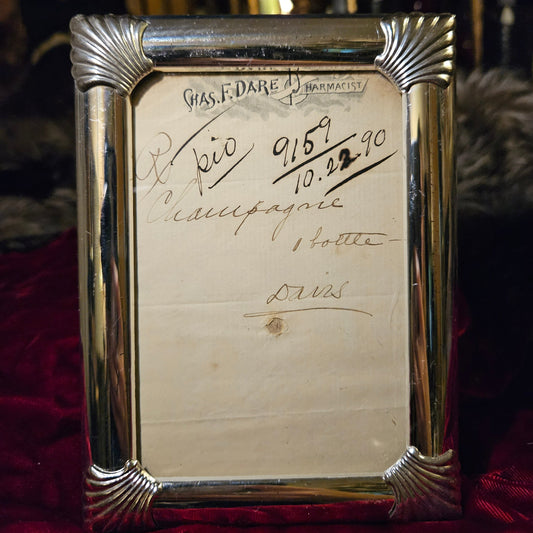 CHAS. F. DARE PHARMACIST
Rx pio 9159
10.22.90
Champagne
1 bottle
Davis